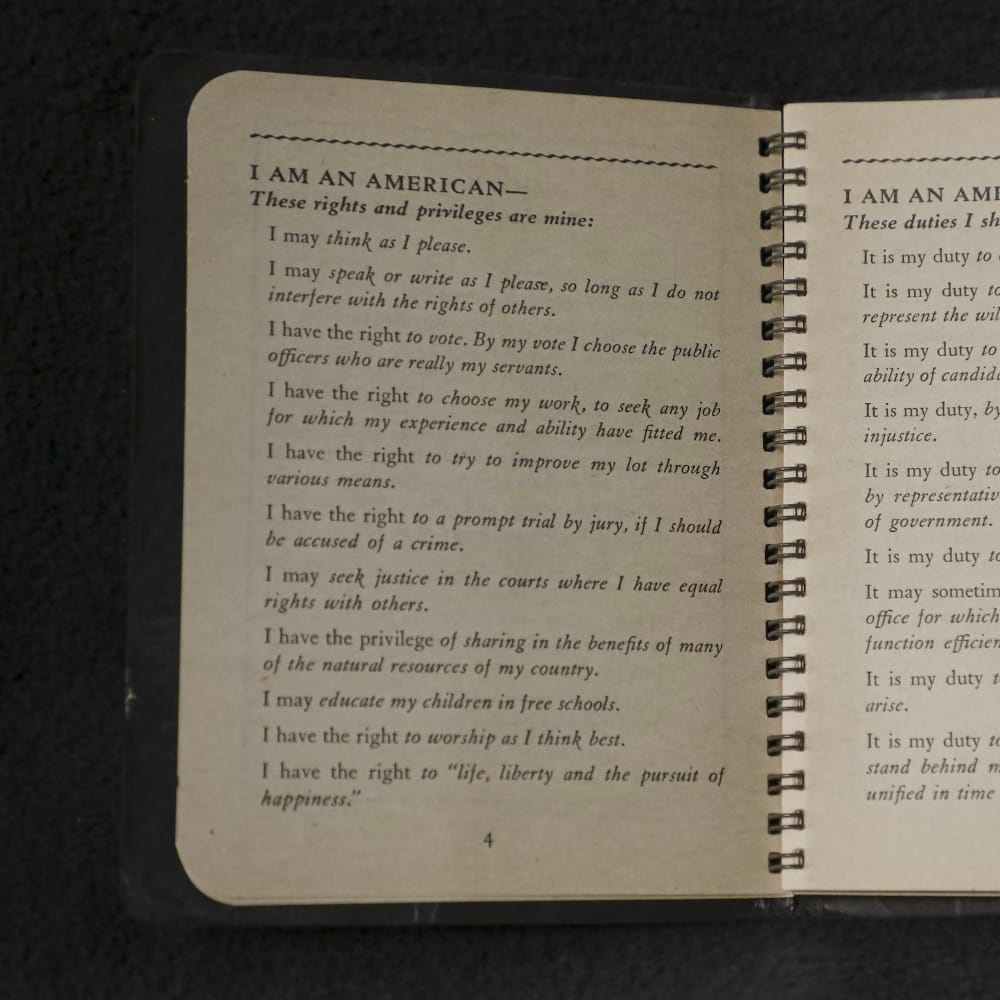 I AM AN AMERICAN—
These rights and privileges are mine:
I may think as I please.
I may speak or write as I please, so long as I do not
interfere with the rights of others.
I have the right to vote. By my vote I choose the public
officers who are really my servants.
I have the right to choose my work, to seek any job
for which my experience and ability have fitted me.
I have the right to try to improve my lot through
various means.
I have the right to a prompt trial by jury, if I should
be accused of a crime.
I may seek justice in the courts where I have equal
rights with others.
I have the privilege of sharing in the benefits of many
of the natural resources of my country.
I may educate my children in free schools.
I have the right to worship as I think best.
I have the right to “life, liberty and the pursuit of
happiness.”
4
I AM AN
These duties I
It is my duty to
It is my duty
represent the
It is my duty to
ability of
It is my duty, by
injustice.
It is my duty to
by
of government.
It is my duty
It may
office for which
function
It is my duty
arise.
It is my duty to
stand behind
unified in time